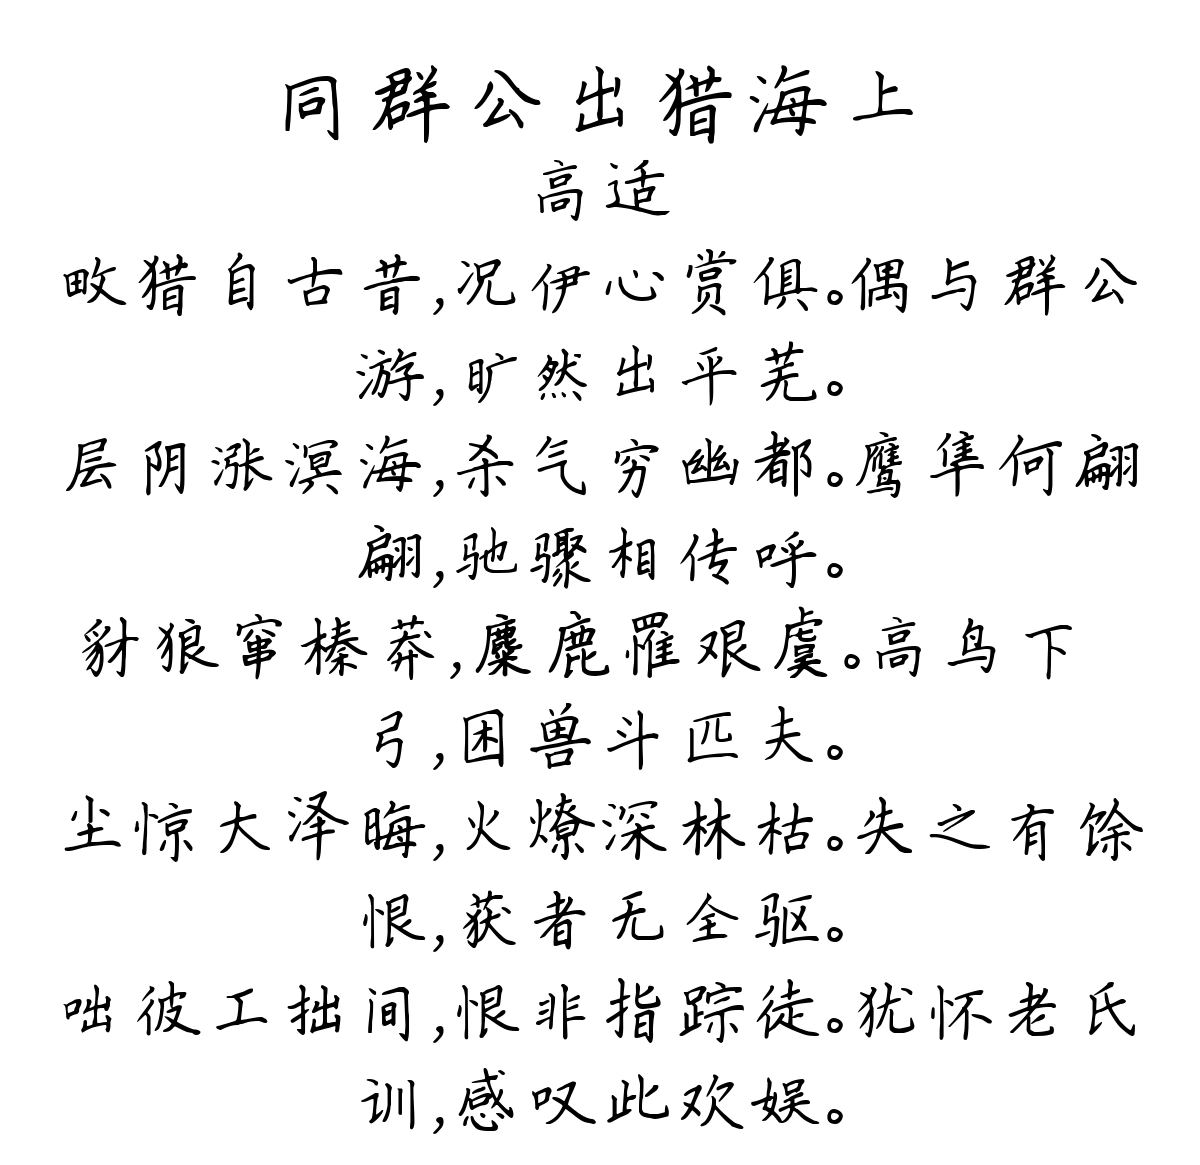 同群公出猎海上
高适
畋猎自古昔,况伊心赏俱。偶与群公
游,旷然出平芜。
层阴涨溟海,杀气穷幽都。鹰隼何翩
翩,驰骤相传呼。
豺狼窜榛莽,麋鹿罹艰虞。高鸟下
弓,困兽斗匹夫。
尘惊大泽晦,火燎深林枯。失之有馀
恨,获者无全驱。
咄彼工拙间,恨非指踪徒。犹怀老氏
训,感叹此欢娱。